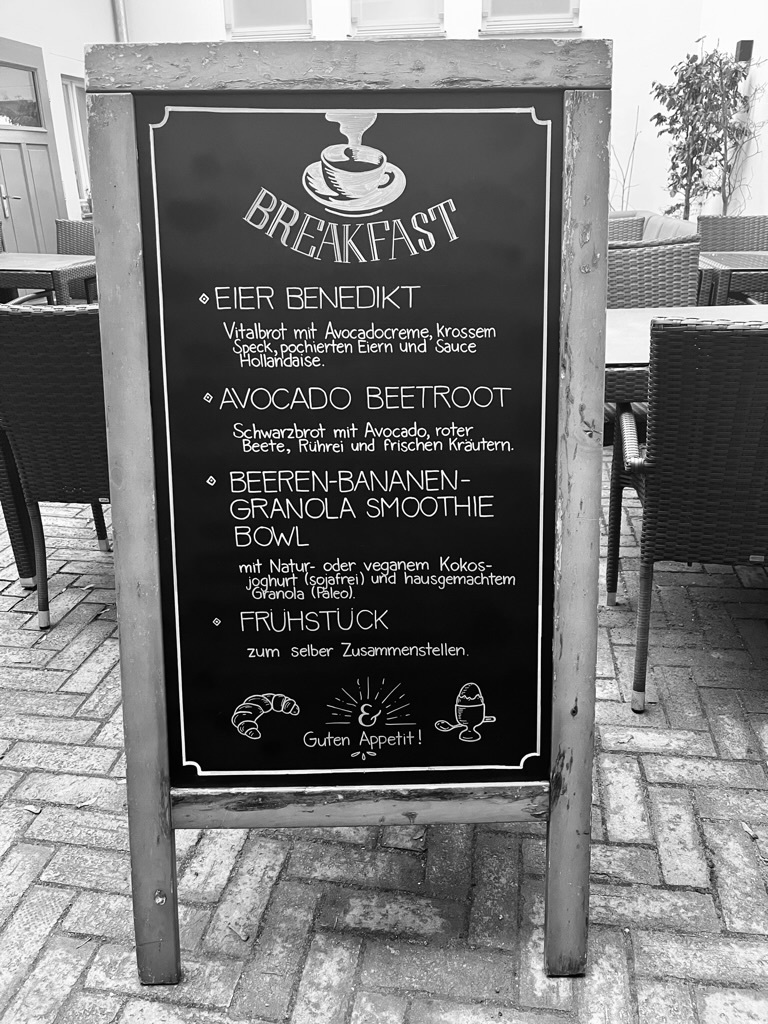 BREAKFAST
EIER BENEDIKT
Vitalbrot mit Avocadocreme, krossem
Speck, pochierten Eiern und Sauce
Hollandaise.
AVOCADO BEETROOT
Schwarzbrot mit Avocado, roter
Beete, Rührei und frischen Kräutern.
BEEREN-BANANEN-
GRANOLA SMOOTHIE
BOWL
mit Natur- oder veganem Kokos-
joghurt (sojafrei) und hausgemachtem
Granola (Paleo).
FRÜHSTÜCK
zum selber Zusammenstellen.
&
Guten Appetit!